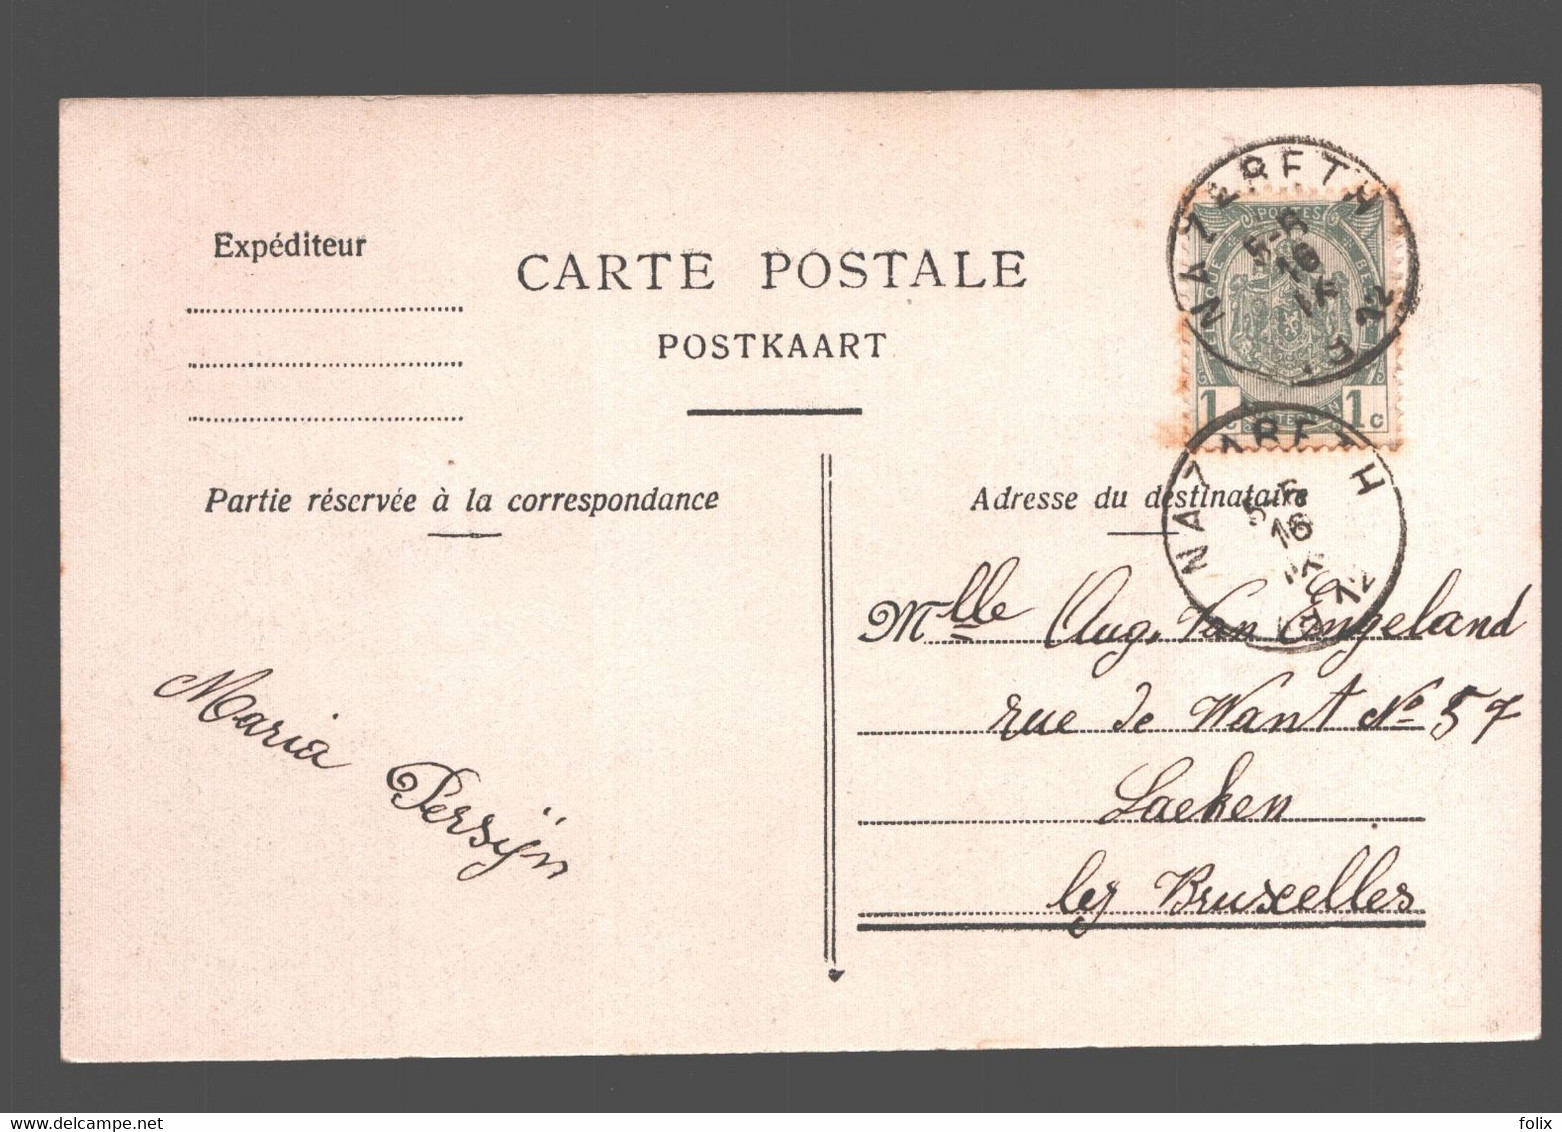 Expéditeur
CARTE POSTALE
POSTKAART
Partie réservée à la correspondance
Adresse du destinataire
NAZARETH
5-6
16
12
POSTES
1 c
1 c
NAZARETH
16
12
Mlle Aug. Van Engeland
rue de Want No 57
Laeken
lez Bruxelles
Maria Persijn
folix